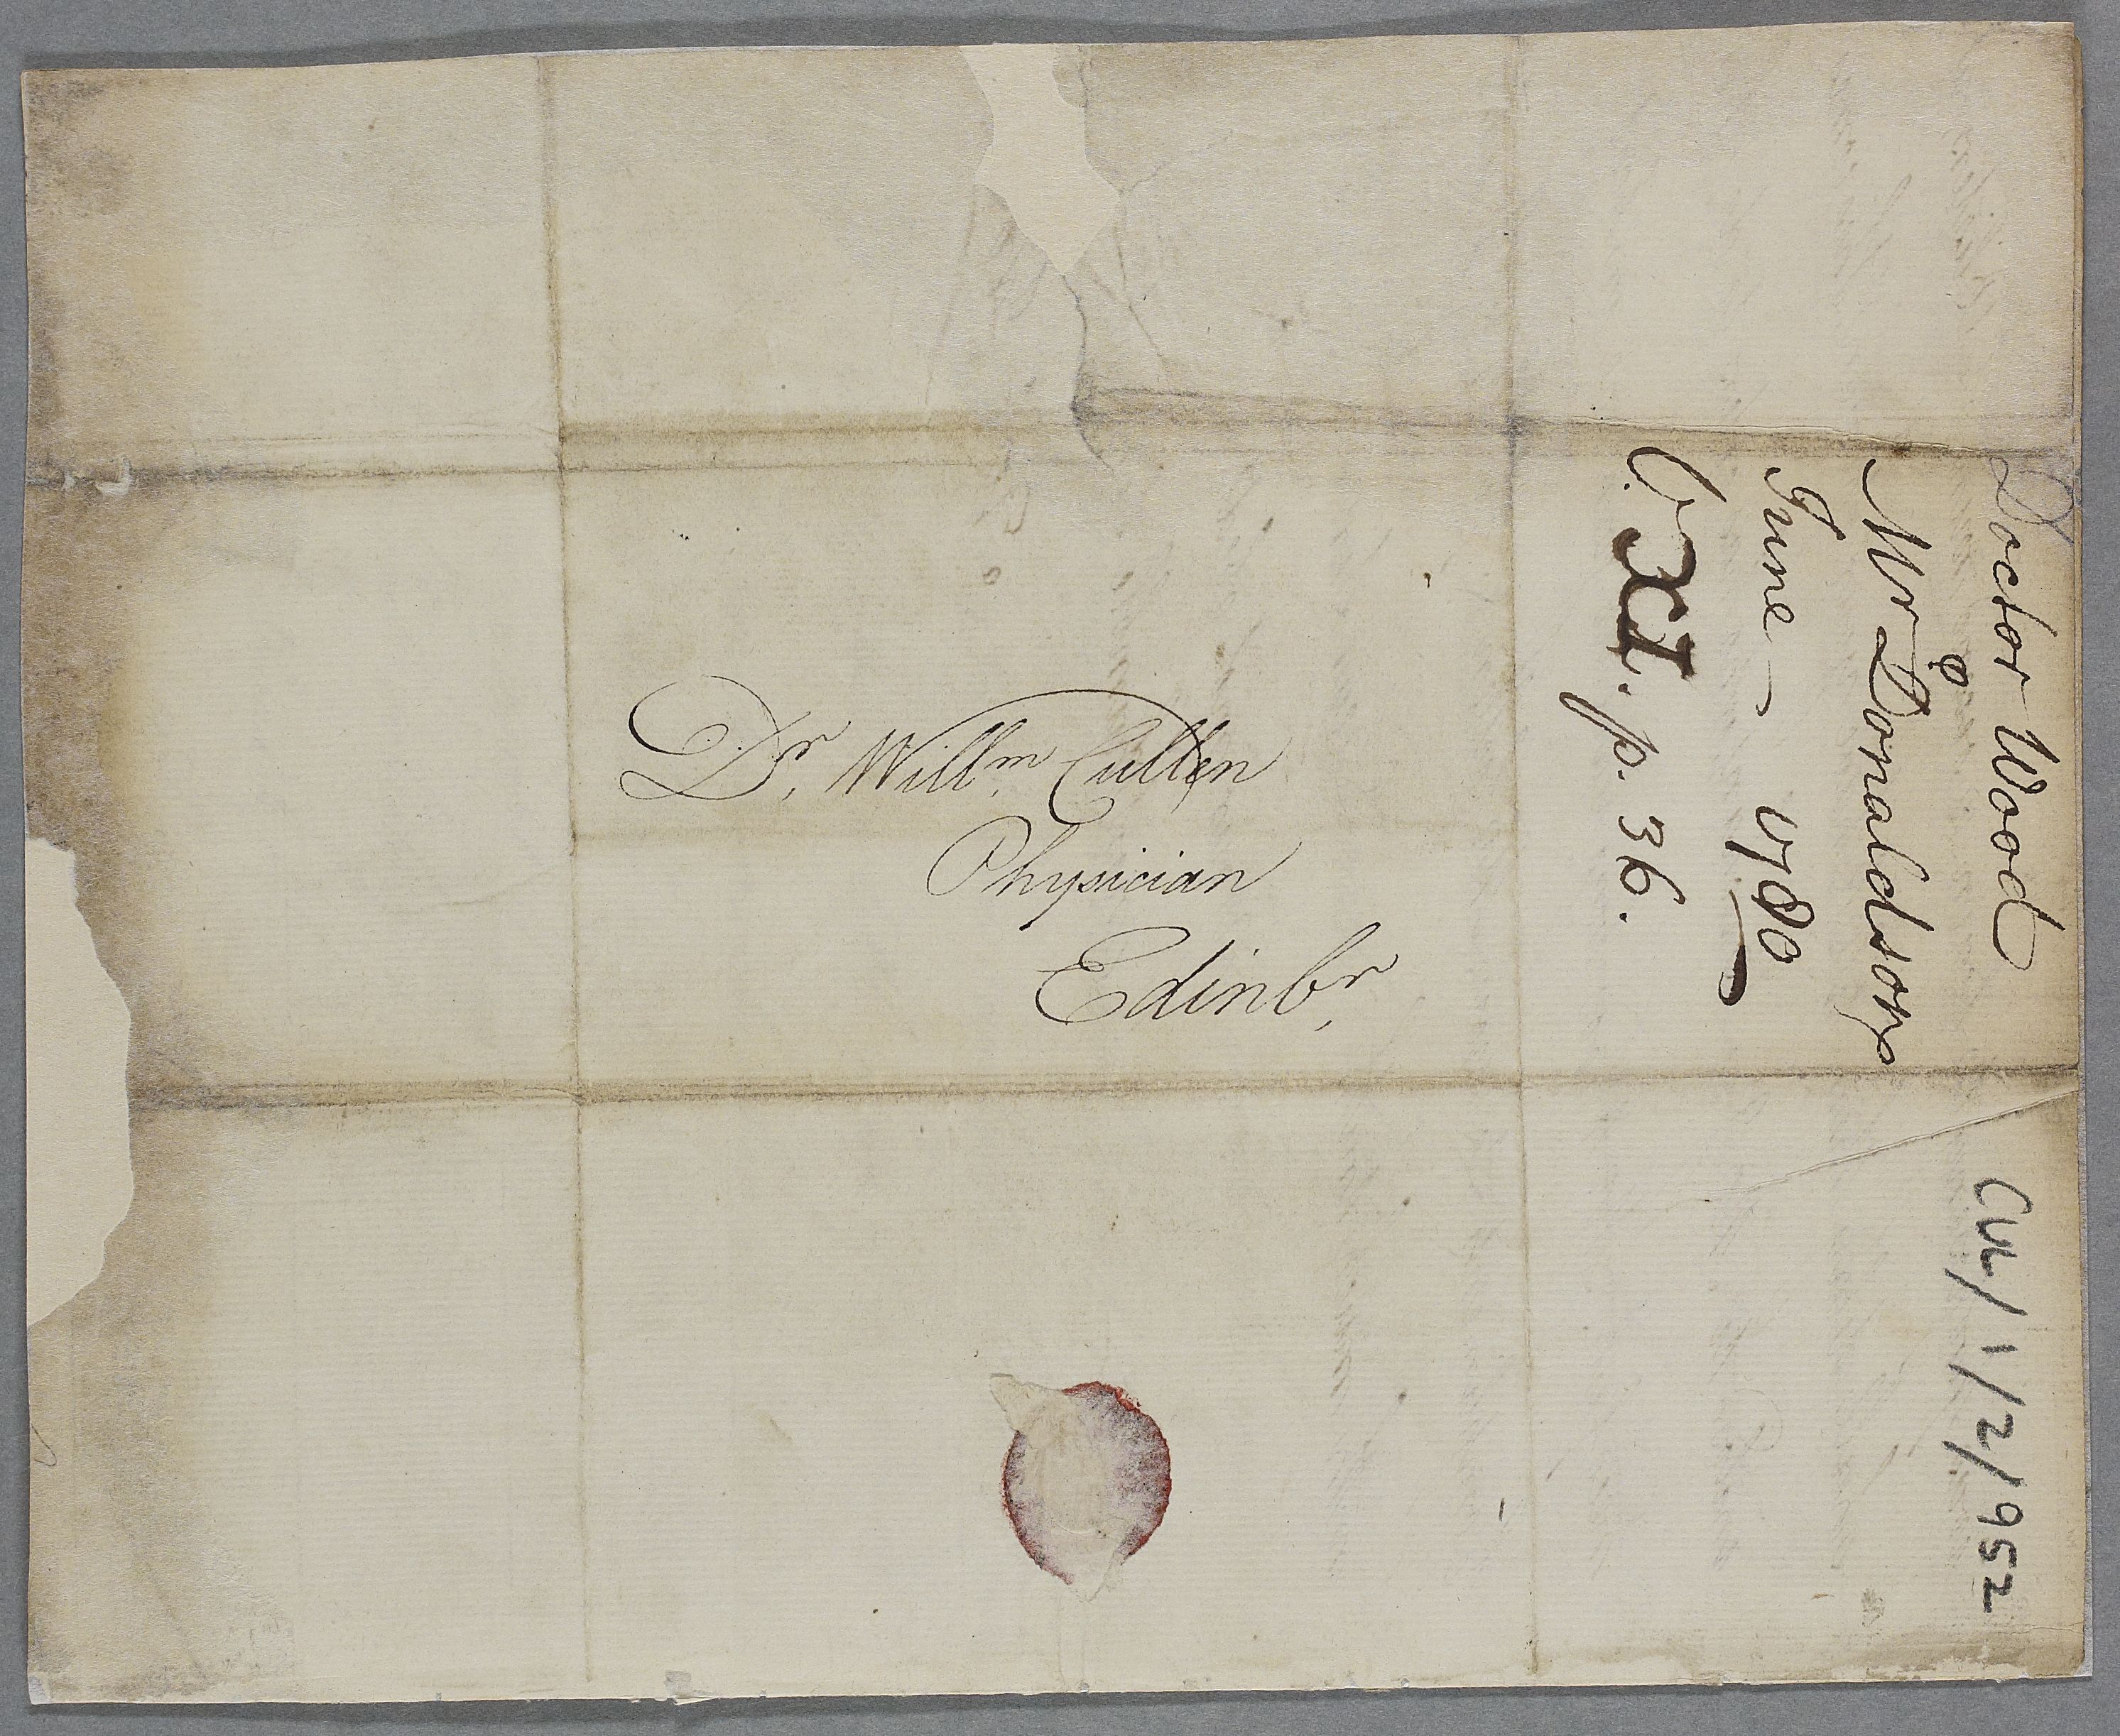 Dr. Willm. Cullen
Physician
Edinbr.
Doctor Wood
Mr Donaldson
June — 1780
V. XI. p. 36.
CUL/1/2/952